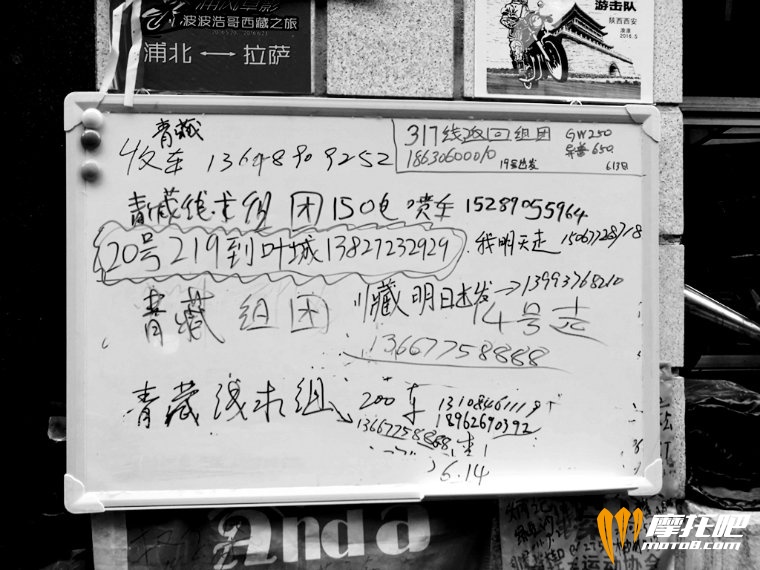 波波浩哥西藏之旅
浦北 ⟷ 拉萨
游击队
陕西西安
2016.5
青藏
收车 13648909252
317线返回组团 GW250
18630600010 19号出发 6.13日
青藏线求组团150电喷车 15289055964
20号219到叶城13827232929
我明天走 15067728718
川藏 明日出发→13993768210
青藏 组团
14号走
13667758888
青藏线求组
200车 13108461119
18962690392
13667758888
6.14
Anda
摩托吧
MOTO8.COM